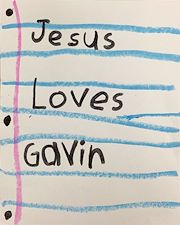 Jesus
Loves
Gavin